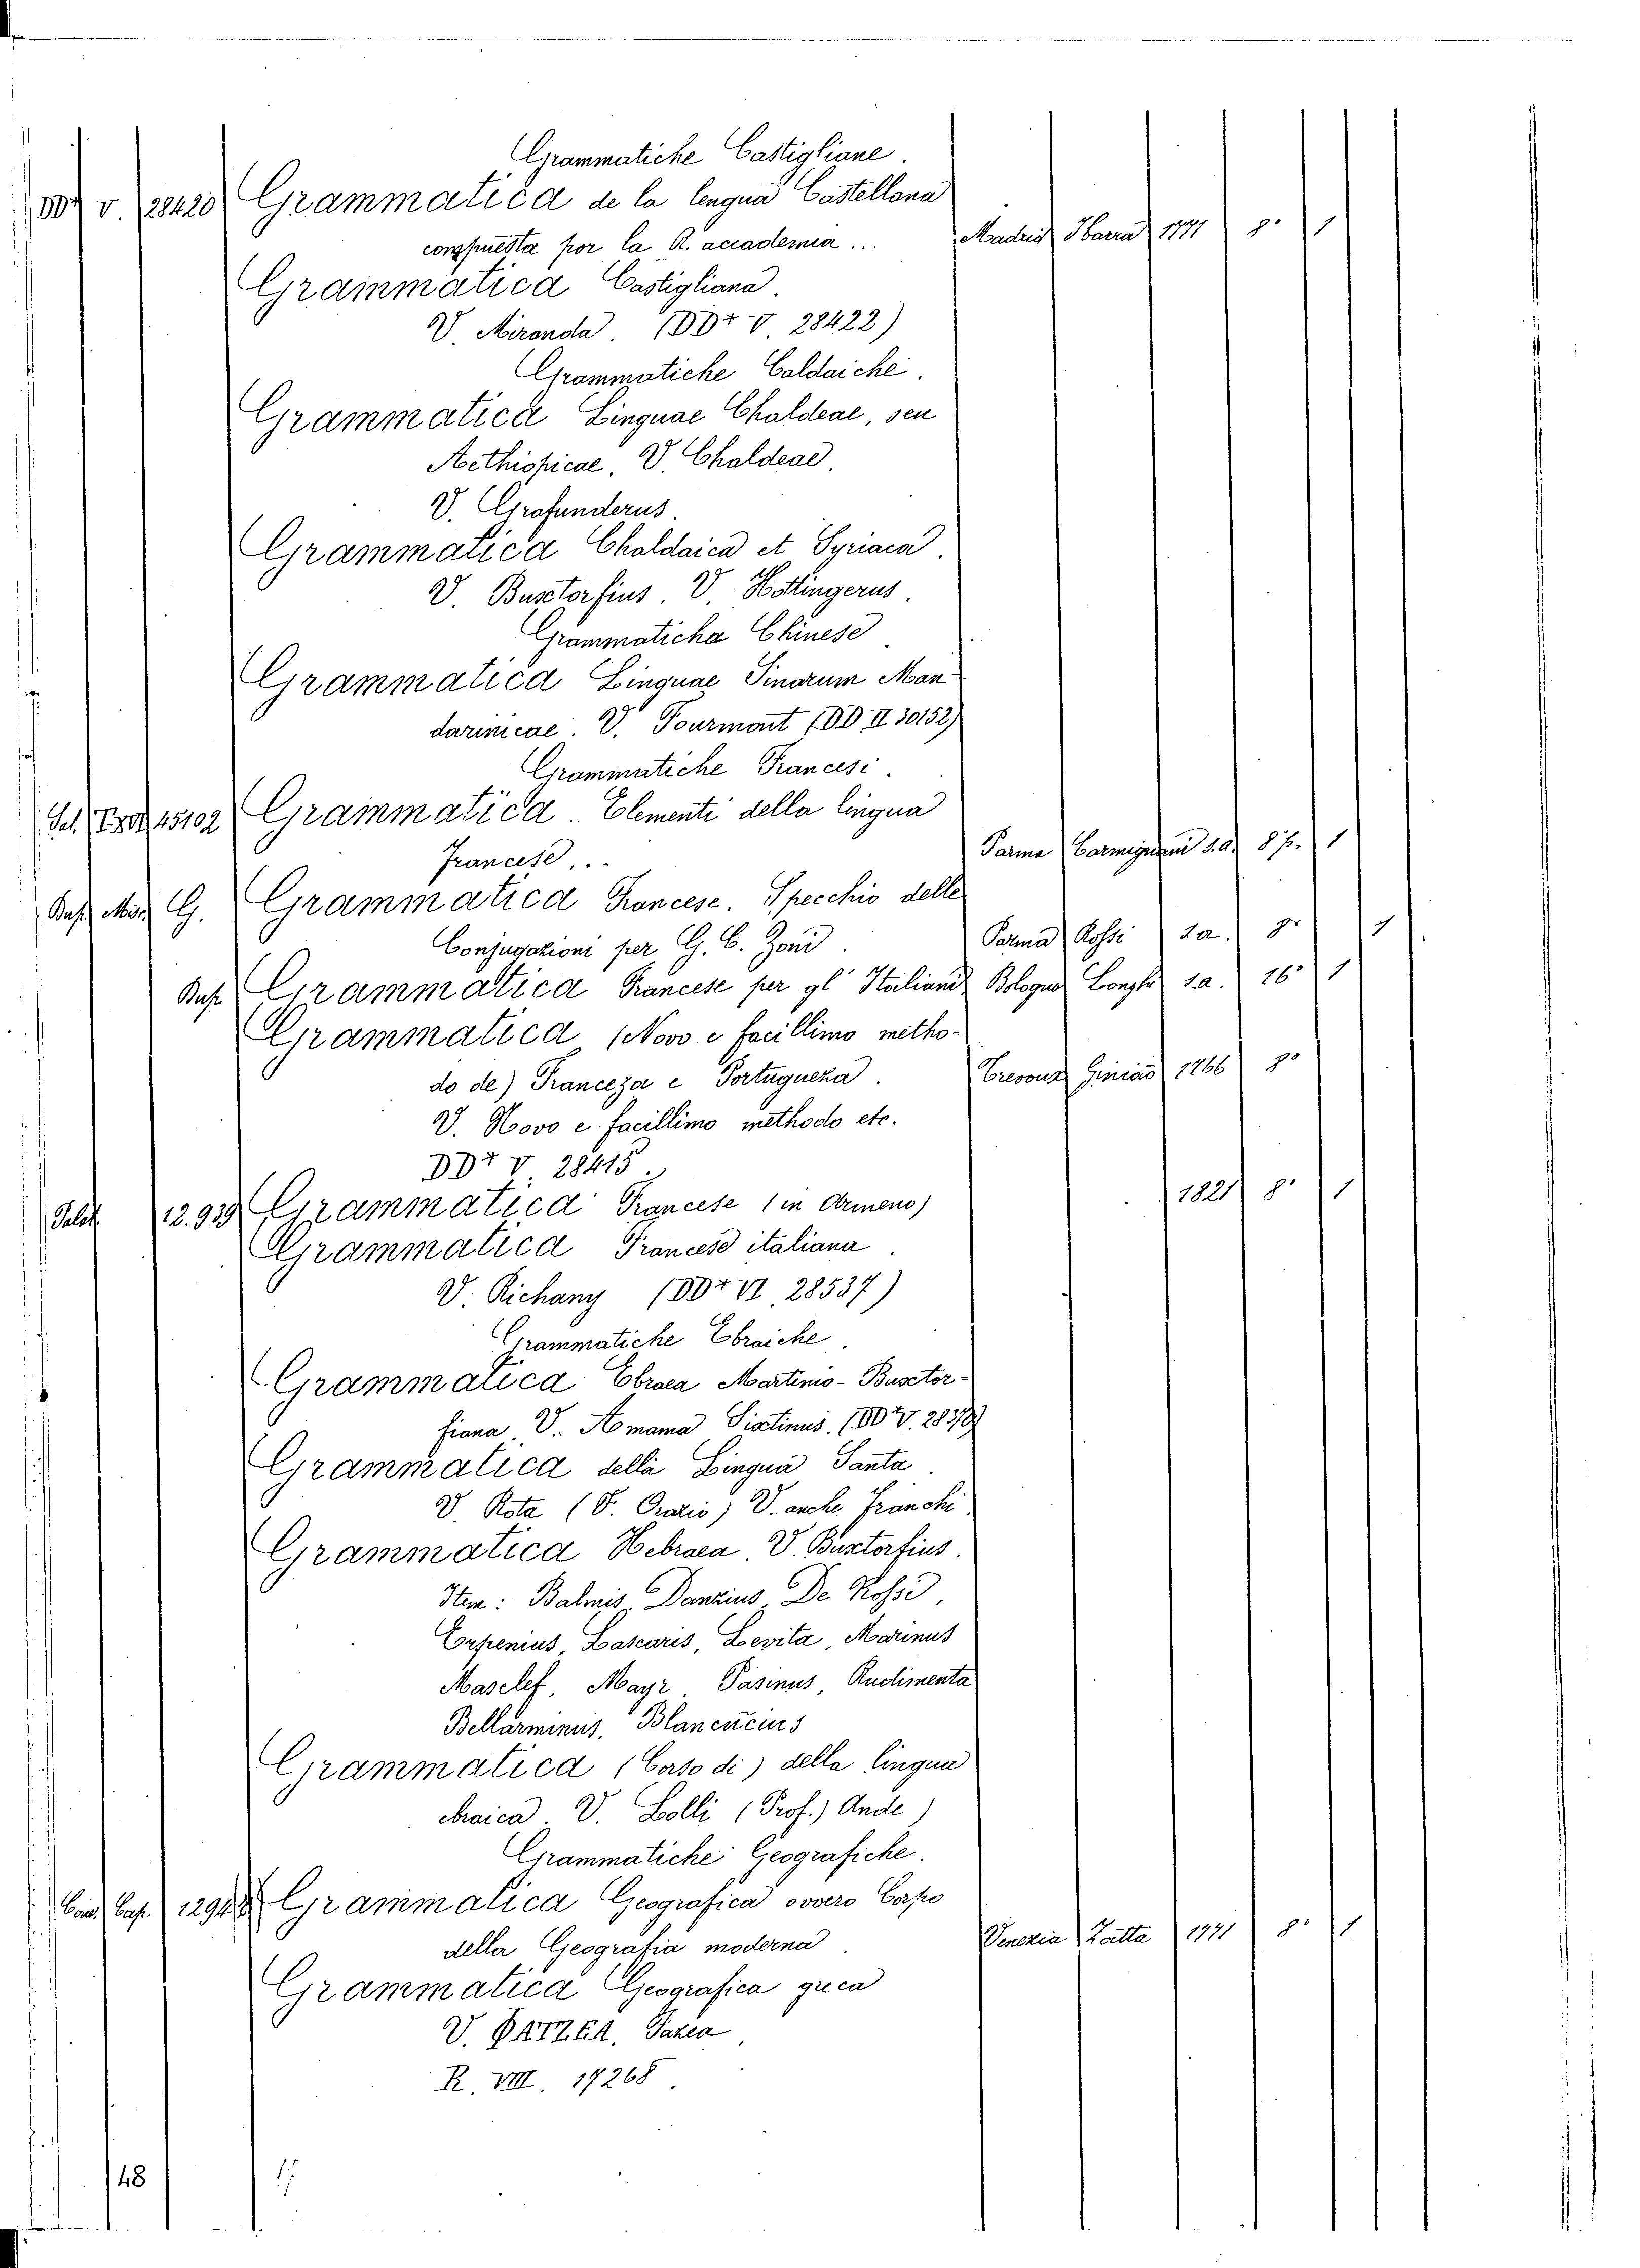 Grammatiche Castigliane.
DD† V. 28420 Grammatica de la lengua Castellana
compuesta por la R. accademia... Madrid Ibarra 1771 8° 1
Grammatica Castigliana.
V. Miranda. (DD† V 28422)
Grammatiche Caldaiche.
Grammatica Linguae Chaldeae, seu
Aethiopicae, V. Chaldeae.
V. Grafunderus.
Grammatica Chaldaica et Syriaca.
V. Buxtorfius. V. Hottingerus.
Grammaticha Chinese
Grammatica Linguae Sinarum Man-
darinicae. V. Fourmont (DD II 30152)
Grammatiche Francesi.
45102 Grammatica. Elementi della lingua
Francese... Parma Carmignani s.a. 8 p. 1
Bas. Misc. G. Grammatica Francese. Specchio delle
Conjugazioni per G. C. Zoni. Parma Rossi 8° 1
Bas. Grammatica Francese per gl' Italiani Bologna Longhi s.a. 16° 1
Grammatica (Novo e facillimo metho-
do de) Franceza e Portugueza. 1766 8°
V. Novo e facillimo methodo etc.
DD† V 28415.
Palat. 12.939 Grammatica Francese (in Armeno) 1821 8° 1
Grammatica Francese italiana.
V. Richany (DD† VI 28537)
Grammatiche Ebraiche.
Grammatica Ebraea Martinio-Buxtor-
fiana. V. Amama Sixtinus. (DD† V.
Grammatica della Lingua Santa.
V. Rota (P. Orazio) V. anche Franchi.
Grammatica Hebraea. V. Buxtorfius.
Item: Balmis, Danzius, De Rossi,
Erpenius, Lascaris, Levita, Marinus
Masclef, Mayr, Pasinus, Rudimenta
Bellarminus, Blancucius
Grammatica (Corso di) della lingua
ebraica. V. Lolli (Prof.)
Grammatiche Geografiche.
Cas. Grammatica Geografica ovvero Corso
della Geografia moderna. Venezia Zatta 1771 8° 1
Grammatica Geografica greca
V.
R. VIII. 17268.
48